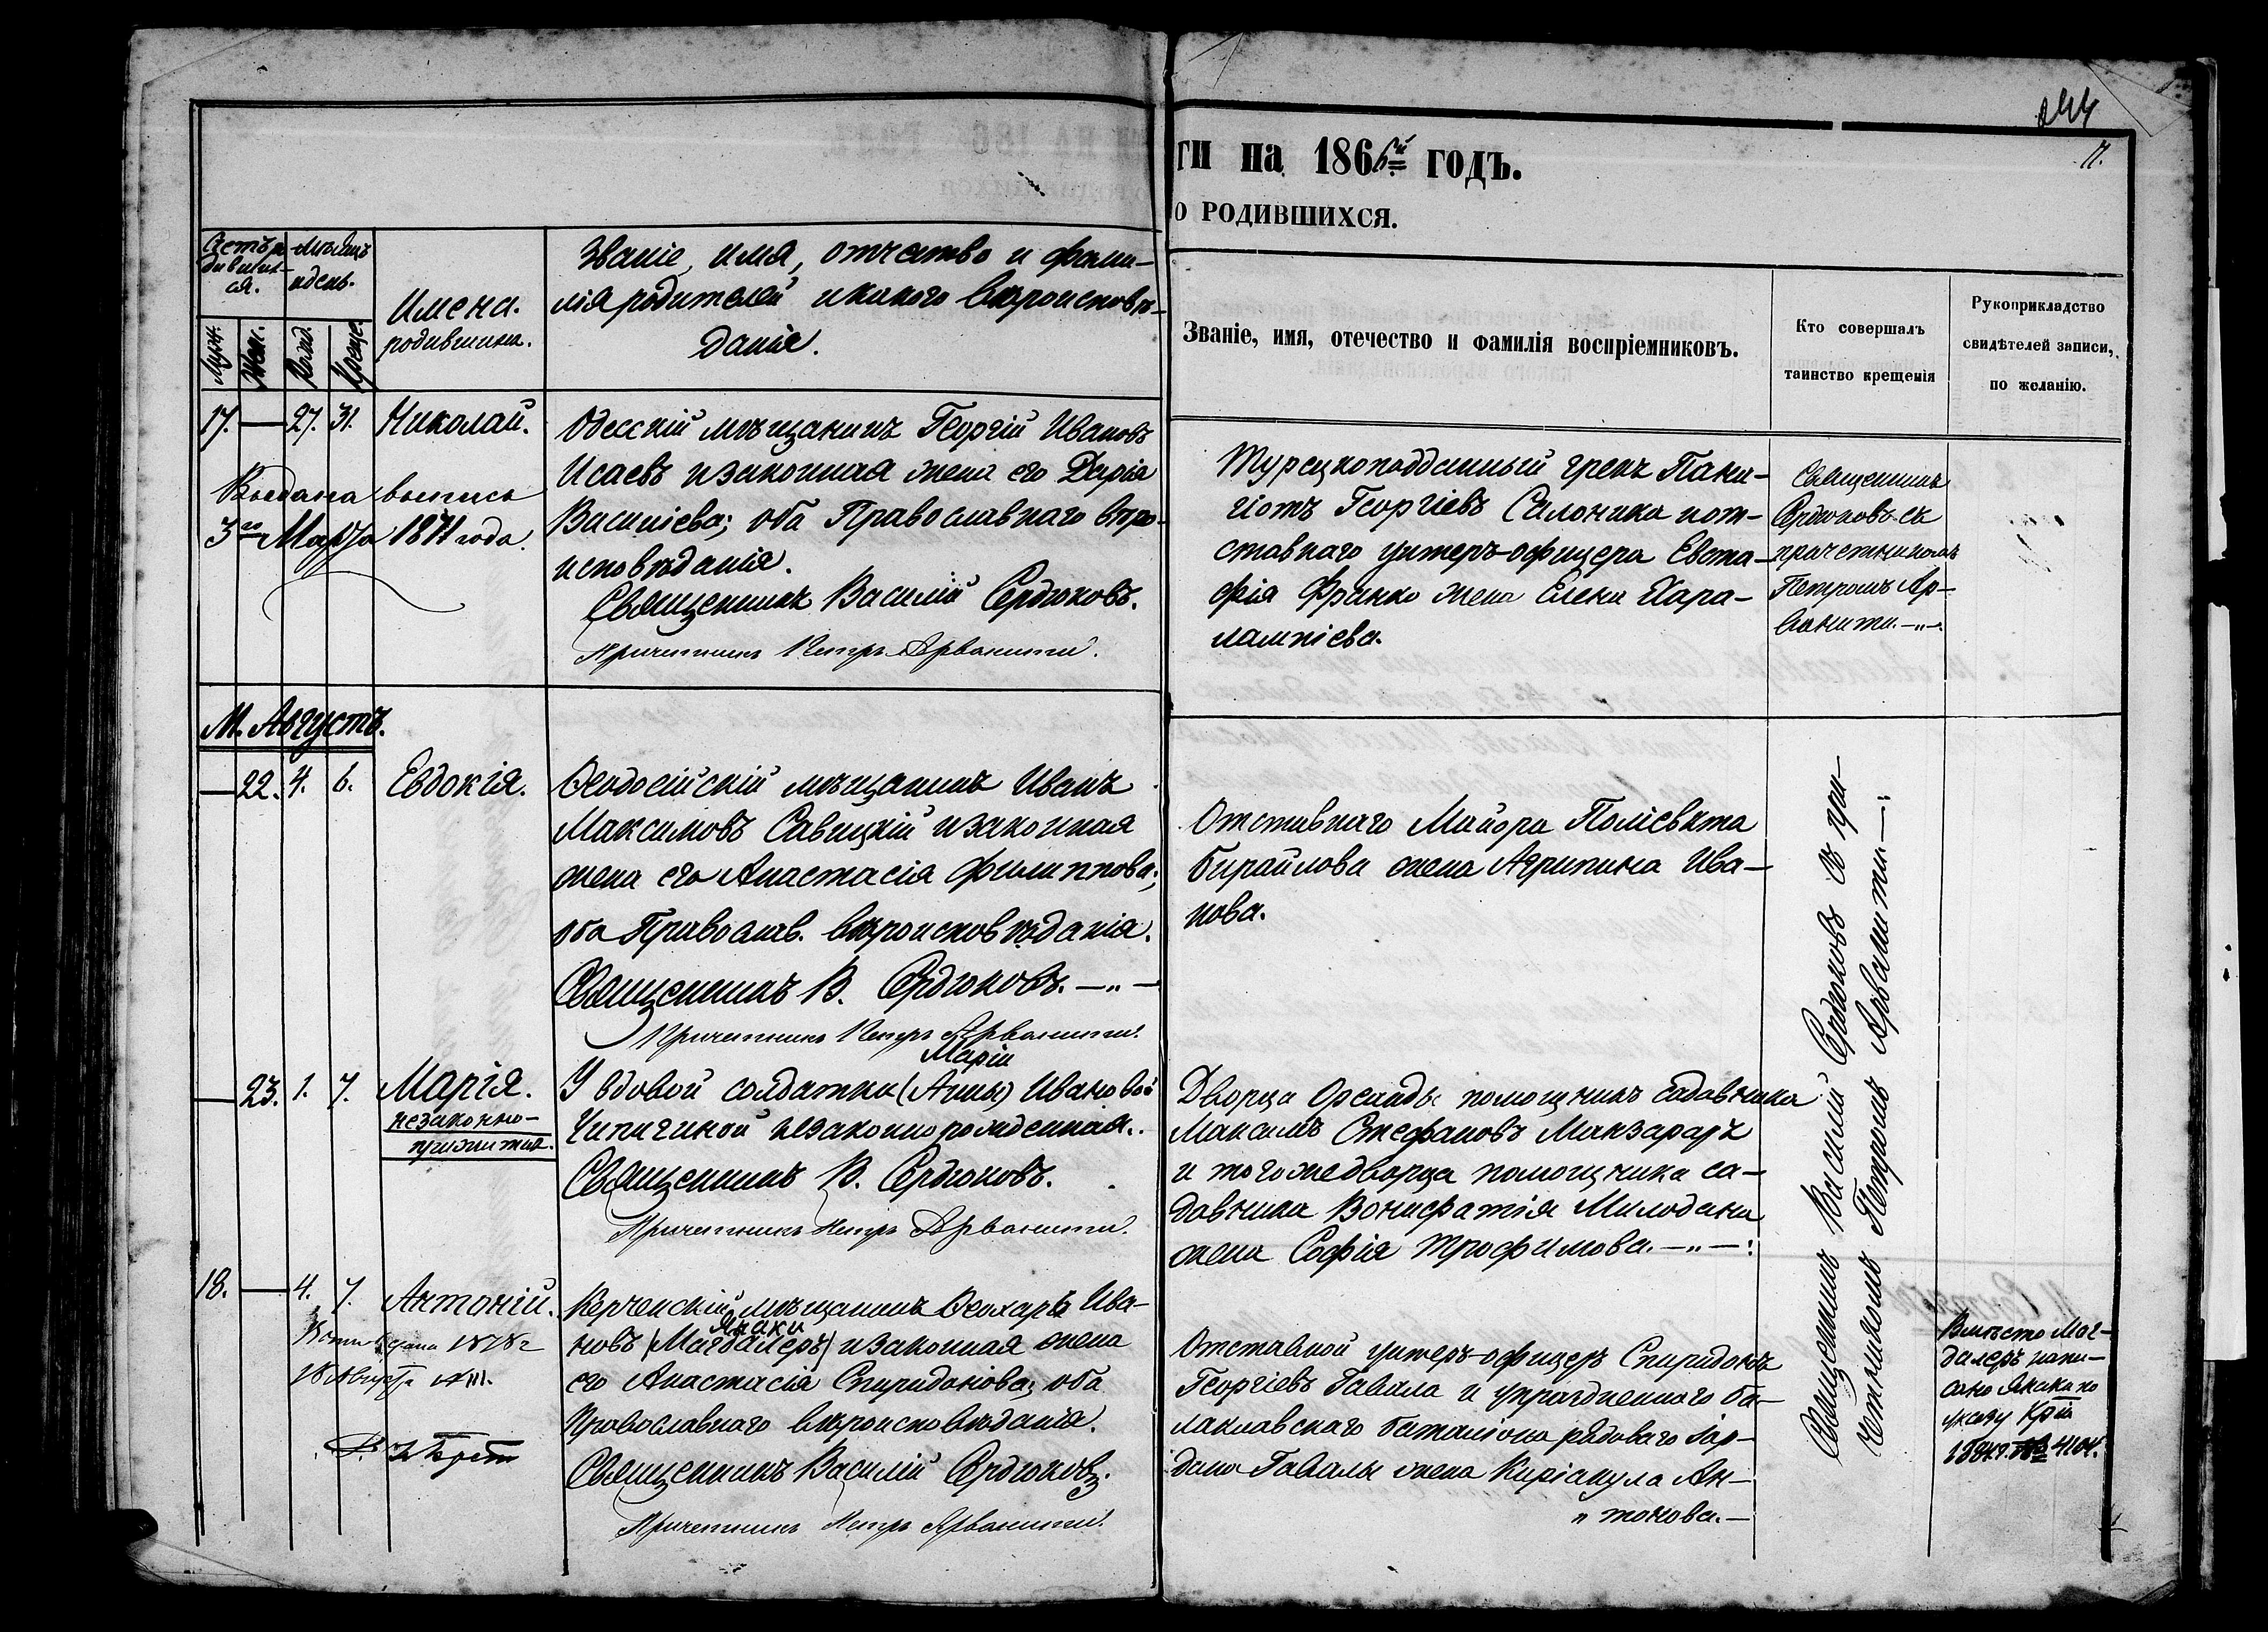 244
11.
ГИ на 1866й ГОДЪ.
О РОДИВШИХСЯ.
Счетъ ро-
дивших-
ся.
Мѣсяцъ
и день.
Муж.
Жен.
Рожд.
Крещ.
Имена.
родившихъ.
Званіе, имя, отчество и фами-
лія родителей и какого вѣроисповѣ-
данія.
Званіе, имя, отечество и фамилія воспріемниковъ.
Кто совершалъ
таинство крещенія
Рукоприкладство
свидѣтелей записи,
по желанію.
17. — 27. 31. Николай.
Выдана выпись
3го Марта 1871 года.
Одесскій мѣщанинъ Георгій Ивановъ
Исаевъ и законная жена его Дарія
Василіева; оба Православнаго вѣро-
исповѣданія.
Священникъ Василій Сердюковъ.
Причетникъ Петръ Арванити.
Турецкоподданный грекъ Пана-
гіотъ Георгіевъ Салоника и от-
ставнаго унтеръ-офицера Евста-
фія Франко жена Елена Хара-
лампіева.
Священникъ
Сердюковъ съ
причетникомъ
Петромъ Ар-
ванити. —„—
М. Августъ.
— 22. 4. 6. Евдокія.
Ѳеодосійскій мѣщанинъ Иванъ
Максимовъ Савицкій и законная
жена его Анастасія Филиппова;
оба Православ. вѣроисповѣданія.
Священникъ В. Сердюковъ. —„—
Причетникъ Петръ Арванити.
Отставнаго Маіора Поліевкта
Бирайлова жена Агрипина Ива-
нова.
— 23. 1. 7. Марія.
незаконно-
прижитая.
Маріи
У вдовой солдатки (Анны) Ивановой
Чипигиной незаконнорожденная.
Священникъ В. Сердюковъ.
Причетникъ Петръ Арванити.
Дворца Ореанды помощникъ садовника
Максимъ Стефановъ Манзараръ
и того же дворца помощника са-
довника Вонифатія Милодана
жена Софія Трофимова. —„—:
18. — 4. 7. Антоній.
1878 г
18 Августа
Керченскій мѣщанинъ Ѳеохарѣ Ива-
Янаки
новъ (Магдалеръ) и законная жена
его Анастасія Спиридонова; оба
Православнаго вѣроисповѣданія.
Священникъ Василій Сердюковъ.
Причетникъ Петръ Арванити.
Отставной унтеръ-офицеръ Спиридонъ
Георгіевъ Гавала и упраздненнаго ба-
лаклавскаго баталіона рядоваго Іор-
дана Гавалы жена Киріакула Ан-
„ тонова.—
Священникъ Василій Сердюковъ съ при-
четникомъ Петромъ Арванити.—„—:
Вмѣсто Маг-
далеръ напи-
сано Янаки по
указу
№ 4104.